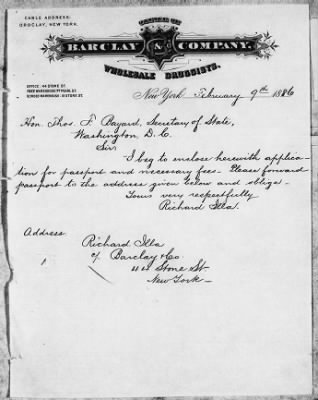 CABLE ADDRESS:
BROCLAY, NEW YORK.
OFFICE OF
BARCLAY & COMPANY,
WHOLESALE DRUGGISTS.
OFFICE: 44 STONE ST.
New York February 9th 1886
Hon. Thos. F. Bayard, Secretary of State,
Washington, D.C.
Sir
I beg to enclose herewith applica-
tion for passport and necessary fees. Please forward
passport to the address given below and oblige.
Yours very respectfully
Richard Illa.
Address
Richard Illa
c/ Barclay & Co.
44 Stone St.
New York